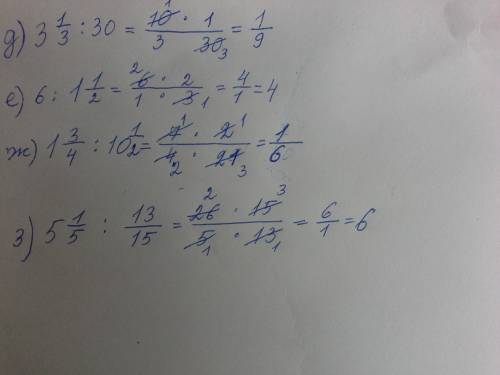 д) 3 1/3 : 30 = 10 · 1 / 3 · 30 = 1/9
е) 6 : 1 1/2 = 6 · 2 / 1 · 3 = 4/1 = 4
ж) 1 3/4 : 10 1/2 = 7 · 2 / 4 · 21 = 1/6
з) 5 1/5 : 13/15 = 26 · 15 / 5 · 13 = 6/1 = 6